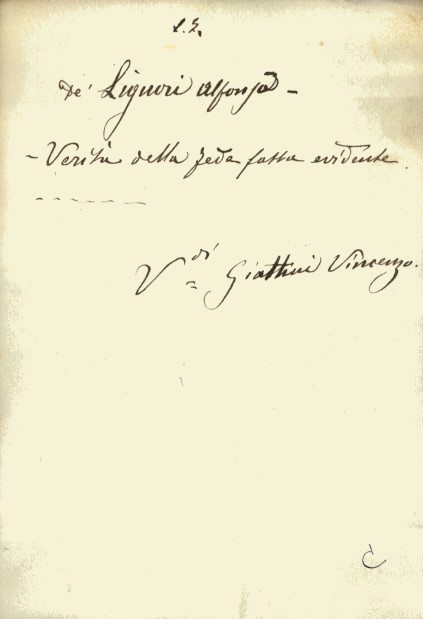 S. L.
De' Liguori Alfonso -
- Verità della fede fatta evidente.
V.di Giattini Vincenzo.
C